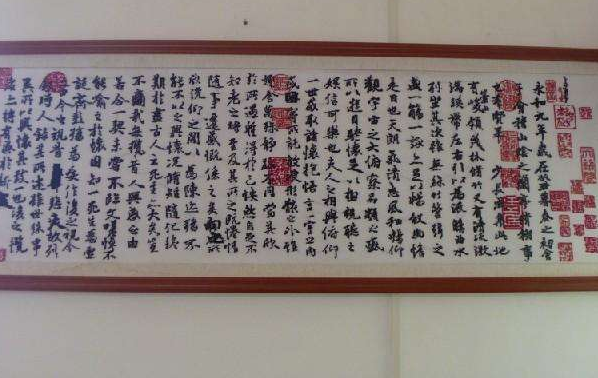 永和九年歲在癸丑暮春之初會
于會稽山陰之蘭亭脩稧事
也羣賢畢至少長咸集此地
有崇山峻領茂林脩竹又有清流激
湍暎帶左右引以為流觴曲水
列坐其次雖無絲竹管弦之
盛一觴一詠亦足以暢敘幽情
是日也天朗氣清惠風和暢仰
觀宇宙之大俯察品類之盛
所以遊目騁懷足以極視聽之
娛信可樂也夫人之相與俯仰
一世或取諸懷抱悟言一室之內
或因寄所託放浪形骸之外雖
趣舍萬殊靜躁不同當其欣
於所遇蹔得於己快然自足不
知老之將至及其所之既惓情
隨事遷感慨係之矣向之所
欣俛仰之閒以為陳迹猶不
能不以之興懷況脩短隨化終
期於盡古人云死生亦大矣豈
不痛哉每攬昔人興感之由
若合一契未嘗不臨文嗟悼不
能喻之於懷固知一死生為虛
誕齊彭殤為妄作後之視今
亦由今之視昔悲夫故列
敘時人錄其所述雖世殊事
異所以興懷其致一也後之攬
者亦將有感於斯